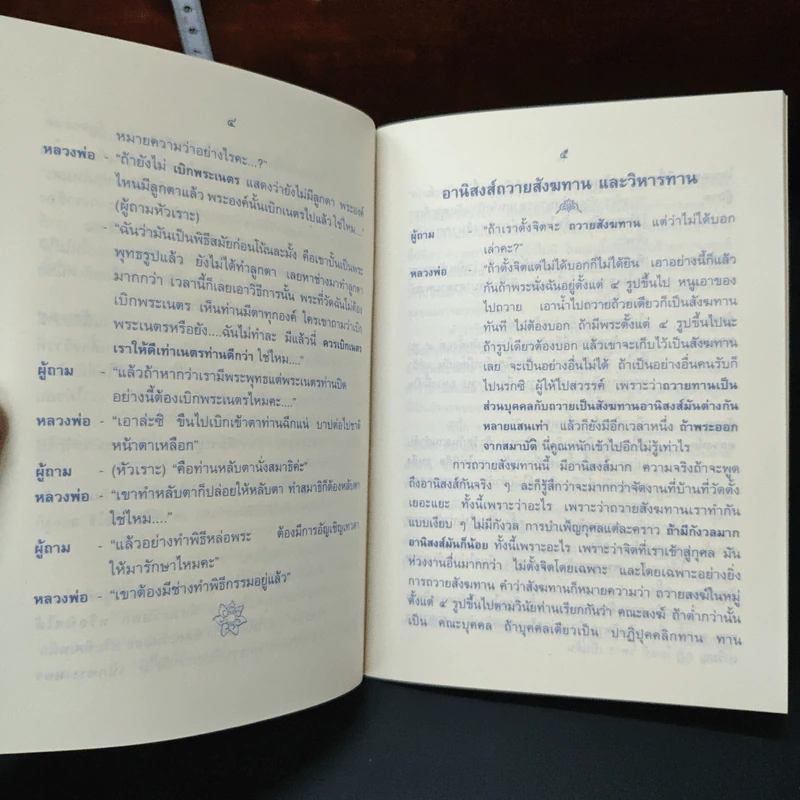 ๔
หมายความว่าอย่างไรคะ...?"
หลวงพ่อ - "ถ้ายังไม่ เบิกพระเนตร แสดงว่ายังไม่มีลูกตา พระองค์
ไหนมีลูกตาแล้ว พระองค์นั้นเบิกเนตรไปแล้ว ใช่ไหม..."
(ผู้ถามหัวเราะ)
- "ฉันว่ามันเป็นพิธีสมัยก่อนโน้นละมั้ง คือเขาปั้นเป็นพระ
พุทธรูปแล้ว ยังไม่ได้ทำลูกตา เลยหาช่างมาทำลูกตา
มากกว่า เวลานี้ก็เลยเอาวิธีการนั้น พระที่วัดฉันไม่ต้อง
เบิกพระเนตร เห็นท่านมีตาทุกองค์ ใครเขาถามว่าเบิก
พระเนตรหรือยัง....ฉันไม่ทำละ มีแล้วนี่ ควรเบิกเนตร
เราให้ดีเท่าเนตรท่านดีกว่า ใช่ไหม...."
ผู้ถาม - "แล้วถ้าหากว่าเรามีพระพุทธแต่พระเนตรท่านปิด
อย่างนี้ต้องเบิกพระเนตรไหมคะ...."
หลวงพ่อ - "เอาล่ะซิ ขืนไปเบิกเข้าตาท่านฉีกแน่ บาปต่อไปชาติ
หน้าตาเหลือก"
ผู้ถาม - (หัวเราะ) "คือท่านหลับตานั่งสมาธิค่ะ"
หลวงพ่อ - "เขาทำหลับตาก็ปล่อยให้หลับตา ทำสมาธิก็ต้องหลับตา
ใช่ไหม...."
ผู้ถาม - "แล้วอย่างทำพิธีหล่อพระ ต้องมีการอัญเชิญเทวดา
ให้มารักษาไหมคะ"
หลวงพ่อ - "เขาต้องมีช่างทำพิธีกรรมอยู่แล้ว"
๕
อานิสงส์ถวายสังฆทาน และวิหารทาน
ผู้ถาม - "ถ้าเราตั้งจิตจะ ถวายสังฆทาน แต่ว่าไม่ได้บอก
เล่าคะ?"
หลวงพ่อ - "ถ้าตั้งจิตแต่ไม่ได้บอกก็ไม่ได้ยิน เอาอย่างนี้ก็แล้ว
กันถ้าพระนั่งฉันอยู่ตั้งแต่ ๔ รูปขึ้นไป หนูเอาของ
ไปถวาย เอาน้ำไปถวายถ้วยเดียวก็เป็นสังฆทาน
ทันที ไม่ต้องบอก ถ้ามีพระตั้งแต่ ๔ รูปขึ้นไปนะ
ถ้ารูปเดียวต้องบอก แล้วเขาจะเก็บไว้เป็นสังฆทาน
เลย จะเป็นอย่างอื่นไม่ได้ ถ้าเป็นอย่างอื่นคนรับก็
ไปนรกซิ ผู้ให้ไปสวรรค์ เพราะว่าถวายทานเป็น
ส่วนบุคคลกับถวายเป็นสังฆทานอานิสงส์มันต่างกัน
หลายแสนเท่า แล้วก็ยังมีอีกเวลาหนึ่ง ถ้าพระออก
จากสมาบัติ นี่คูณหนักเข้าไปอีกไม่รู้เท่าไร
การถวายสังฆทานนี่ มีอานิสงส์มาก ความจริงถ้าจะพูด
ถึงอานิสงส์กันจริง ๆ ละก็รู้สึกว่าจะมากกว่าจัดงานที่บ้านที่วัดตั้ง
เยอะแยะ ทั้งนี้เพราะว่าอะไร เพราะว่าถวายสังฆทานเราทำกัน
แบบเงียบ ๆ ไม่มีกังวล การบำเพ็ญกุศลแต่ละคราว ถ้ามีกังวลมาก
อานิสงส์มันก็น้อย ทั้งนี้เพราะอะไร เพราะว่าจิตที่เราเข้าสู่กุศล มัน
ห่วงงานอื่นมากกว่า ไม่ตั้งจิตโดยเฉพาะ และโดยเฉพาะอย่างยิ่ง
การถวายสังฆทาน คำว่าสังฆทานก็หมายความว่า ถวายสงฆ์ในหมู่
ตั้งแต่ ๔ รูปขึ้นไปตามวินัยท่านเรียกกันว่า คณะสงฆ์ ถ้าต่ำกว่านั้น
เป็น คณะบุคคล ถ้าบุคคลเดียวเป็น ปาฏิปุคคลิกทาน ทาน